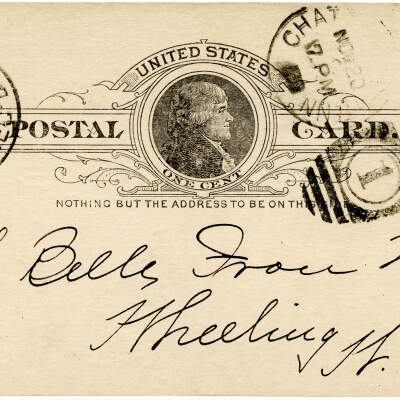 UNITED STATES
POSTAL CARD.
ONE CENT
NOTHING BUT THE ADDRESS TO BE ON THIS SIDE
CHA
NOV 20
12 PM
1
Bells Iron
Wheeling W.